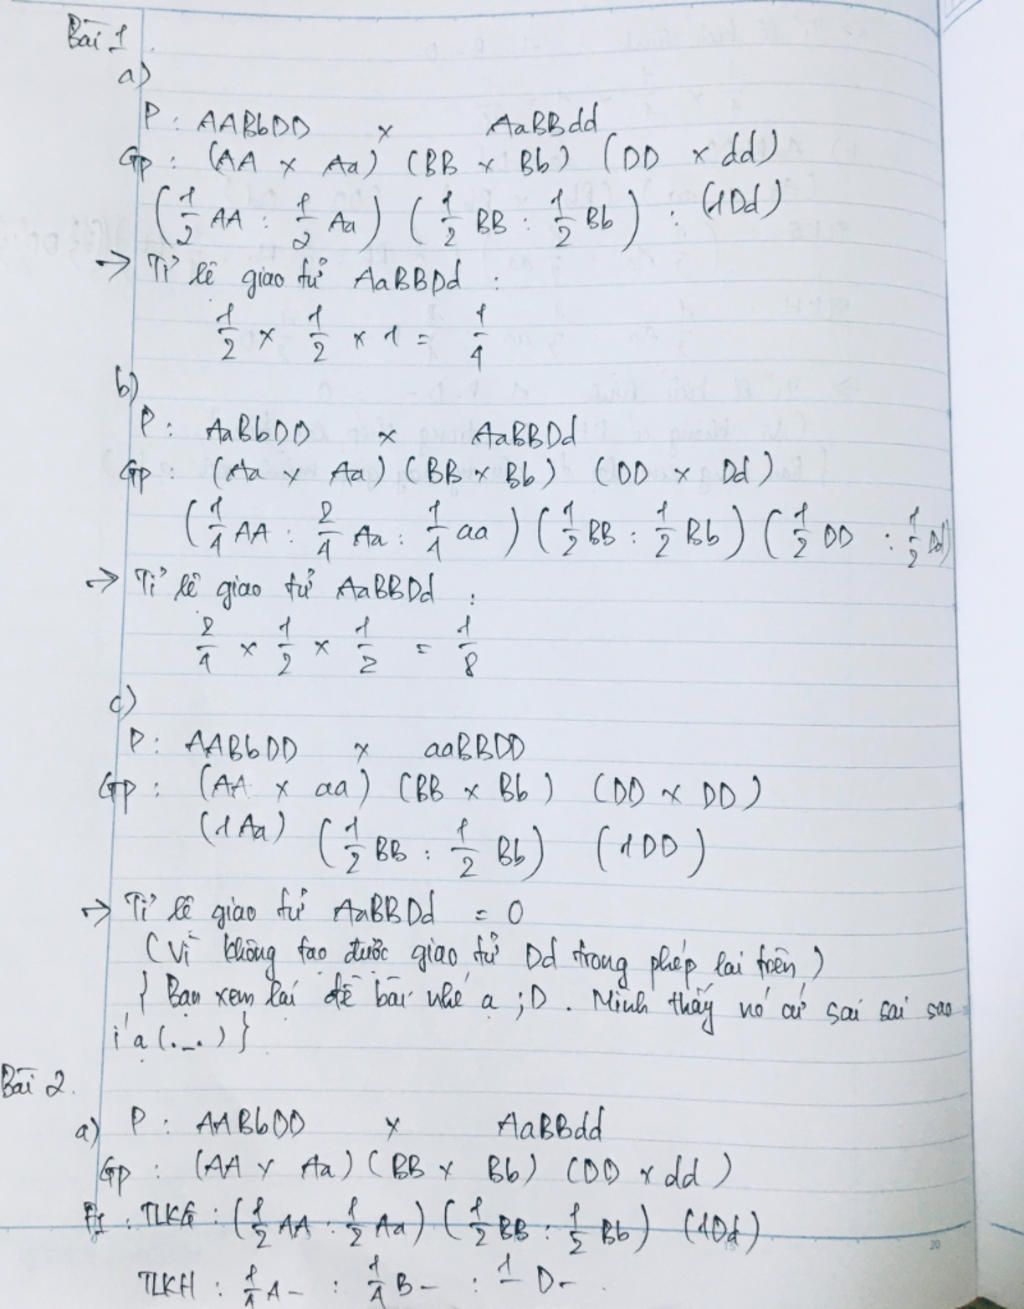 Bài 1.
a)
P : AABbDD x AaBBdd
Gp : (AA x Aa) (BB x Bb) (DD x dd)
(1/2 AA : 1/2 Aa) (1/2 BB : 1/2 Bb) : (1Dd)
→ Tỉ lệ giao tử AaBBDd :
1/2 x 1/2 x 1 = 1/4
b)
P : AaBbDD x AaBBDd
Gp : (Aa x Aa) (BB x Bb) (DD x Dd)
(1/4 AA : 2/4 Aa : 1/4 aa) (1/2 BB : 1/2 Bb) (1/2 DD : 1/2 Dd)
→ Tỉ lệ giao tử AaBBDd :
2/4 x 1/2 x 1/2 = 1/8
c)
P : AABbDD x aaBBDD
Gp : (AA x aa) (BB x Bb) (DD x DD)
(1Aa) (1/2 BB : 1/2 Bb) (1DD)
→ Tỉ lệ giao tử AaBBDd = 0
(Vì không tạo được giao tử Dd trong phép lai trên)
{ Bạn xem lại đề bài nhé ạ ;D . Mình thấy nó cứ sai sai sao
í ạ (._.) }
Bài 2.
a) P : AABbDD x AaBBdd
Gp : (AA x Aa) (BB x Bb) (DD x dd)
F1 : TLKG : (1/2 AA : 1/2 Aa) (1/2 BB : 1/2 Bb) (1Dd)
TLKH : 1/1 A- : 1/1 B- : 1 D-
20